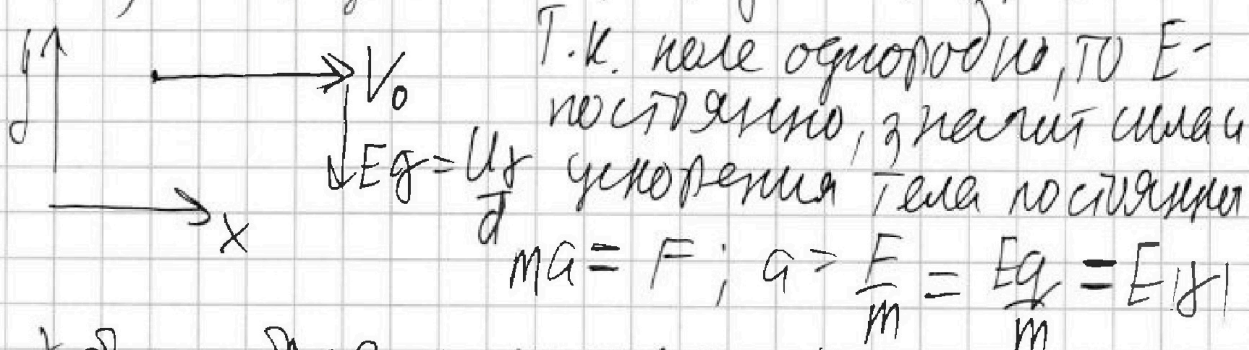 y
V₀
Т.к. поле однородно, то E-
постоянно, значит сила и
Eq = Uq/d ускорения тела постоянны
x
ma = F; a = F/m = Eq/m = E|γ|